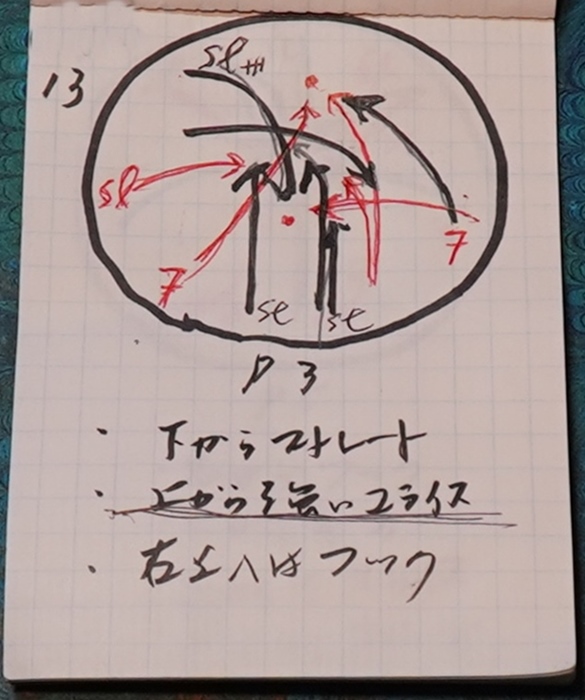 13
sl
sl
7
7
st
st
P 3
・下からストレート
・上から強いスライス
・右上へはフック